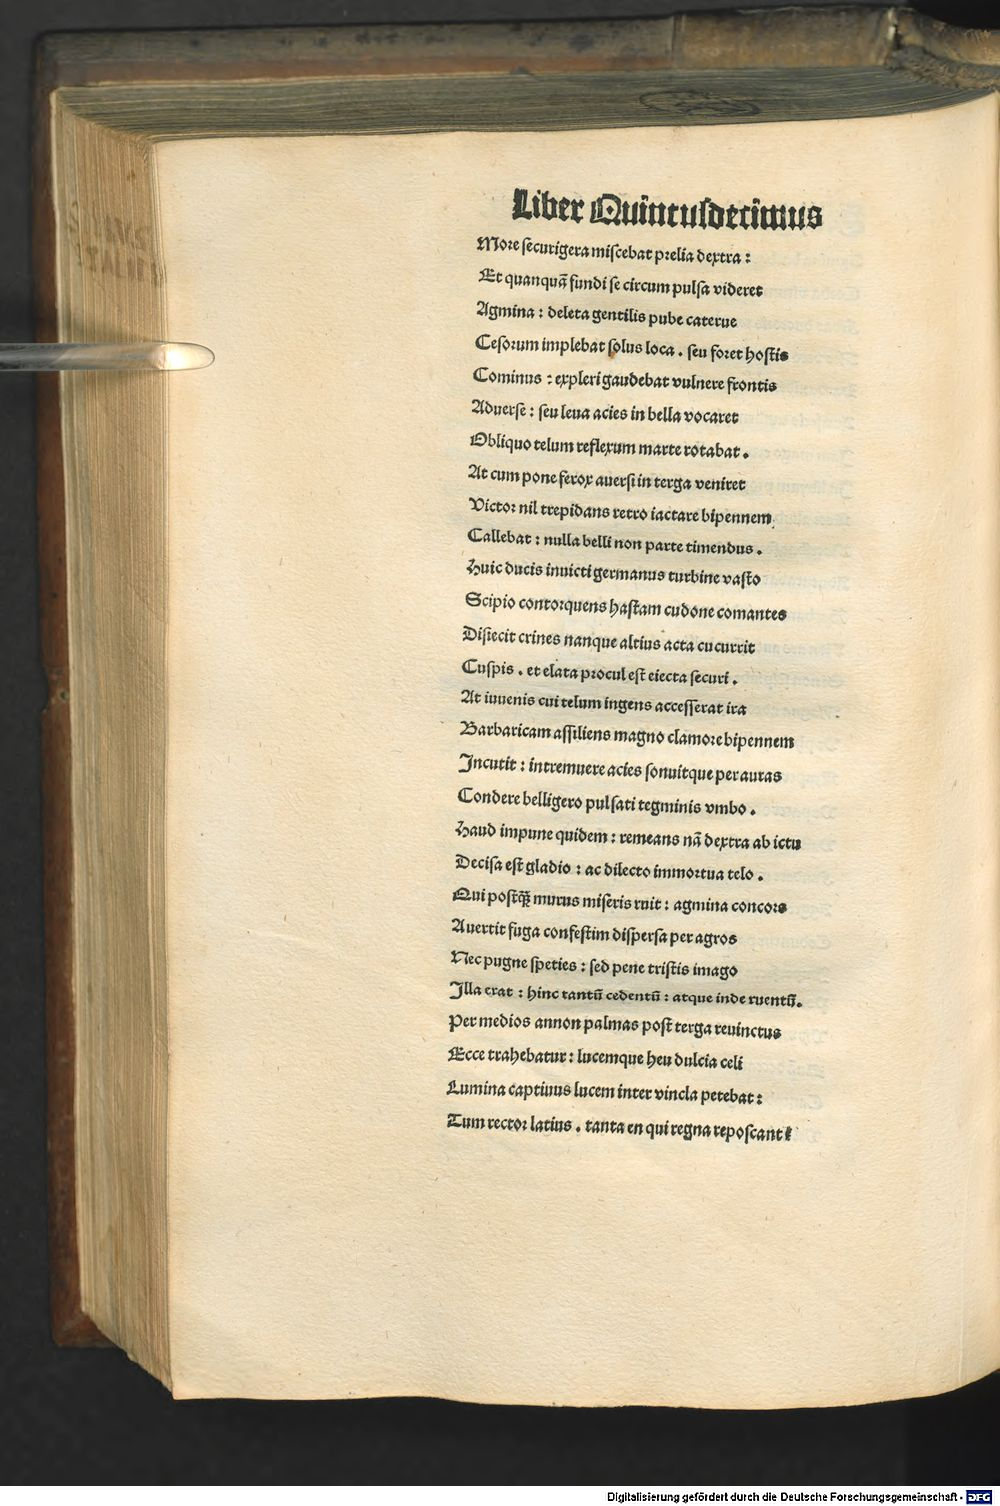 Liber Quintusdecimus
More securigera miscebat prelia dextra :
Et quanquã fundi se circum pulsa videret
Agmina : deleta gentilis pube caterue
Cesorum implebat solus loca . seu foret hostis
Cominus : expleri gaudebat vulnere frontis
Aduerse : seu leua acies in bella vocaret
Obliquo telum reflexum marte rotabat .
At cum pone ferox auersi in terga veniret
Victor nil trepidans retro iactare bipennem
Callebat : nulla belli non parte timendus .
Huic ducis inuicti germanus turbine vasto
Scipio contorquens hastam cudone comantes
Disiecit crines nanque altius acta cucurrit
Cuspis . et elata procul est eiecta securi .
At iuuenis cui telum ingens accesserat ira
Barbaricam assiliens magno clamore bipennem
Incutit : intremuere acies sonuitque per auras
Condere belligero pulsati tegminis vmbo .
Haud impune quidem : remeans nã dextra ab ictu
Decisa est gladio : ac dilecto immortua telo .
Qui postq̃ murus miseris ruit : agmina concors
Auertit fuga confestim dispersa per agros
Nec pugne speties : sed pene tristis imago
Illa erat : hinc tantũ cedentũ : atque inde ruentũ.
Per medios annon palmas post terga reuinctus
Ecce trahebatur : lucemque heu dulcia celi
Lumina captiuus lucem inter vincla petebat :
Tum rector latius . tanta en qui regna reposcant
Digitalisierung gefördert durch die Deutsche Forschungsgemeinschaft - DFG